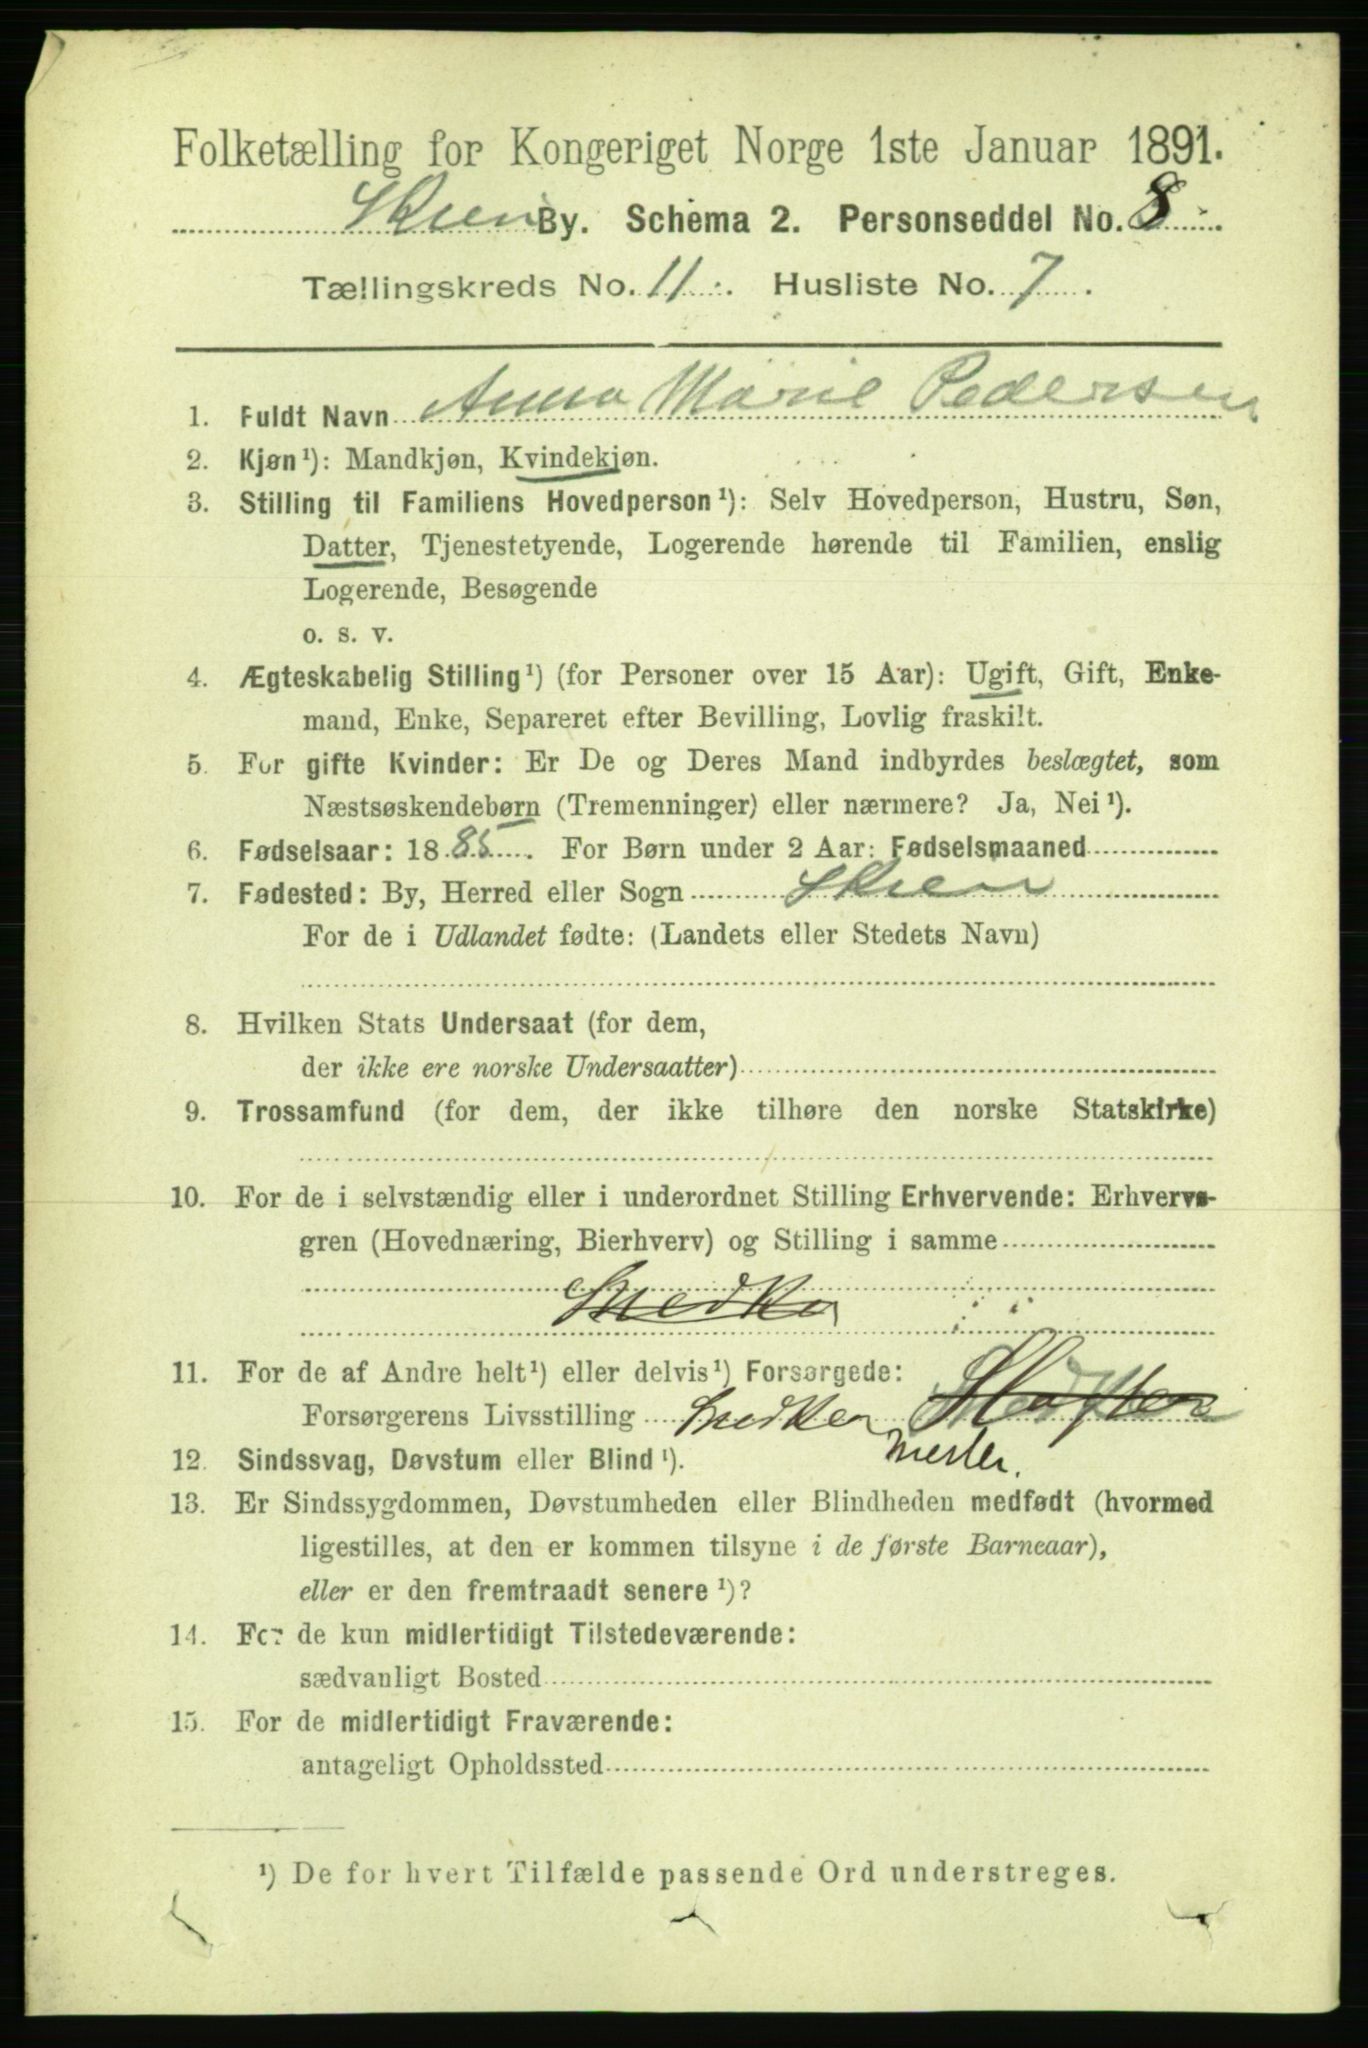 Folketælling for Kongeriget Norge 1ste Januar 1891.
Skien By. Schema 2. Personseddel No. 8.
Tællingskreds No. 11. Husliste No. 7.
1. Fuldt Navn Anna Marie Pedersen
2. Kjøn¹): Mandkjøn, Kvindekjøn.
3. Stilling til Familiens Hovedperson¹): Selv Hovedperson, Hustru, Søn,
Datter, Tjenestetyende, Logerende hørende til Familien, enslig
Logerende, Besøgende
o. s. v.
4. Ægteskabelig Stilling¹) (for Personer over 15 Aar): Ugift, Gift, Enke-
mand, Enke, Separeret efter Bevilling, Lovlig fraskilt.
5. For gifte Kvinder: Er De og Deres Mand indbyrdes beslægtet, som
Næstsøskendebørn (Tremenninger) eller nærmere? Ja, Nei¹).
6. Fødselsaar: 1885. For Børn under 2 Aar: Fødselsmaaned
7. Fødested: By, Herred eller Sogn Skien
For de i Udlandet fødte: (Landets eller Stedets Navn)
8. Hvilken Stats Undersaat (for dem,
der ikke ere norske Undersaatter)
9. Trossamfund (for dem, der ikke tilhøre den norske Statskirke)
10. For de i selvstændig eller i underordnet Stilling Erhvervende: Erhvervs-
gren (Hovednæring, Bierhverv) og Stilling i samme
Snedker
11. For de af Andre helt¹) eller delvis¹) Forsørgede:
Forsørgerens Livsstilling Snedker
mester.
12. Sindssvag, Døvstum eller Blind¹).
13. Er Sindssygdommen, Døvstumheden eller Blindheden medfødt (hvormed
ligestilles, at den er kommen tilsyne i de første Barneaar),
eller er den fremtraadt senere¹)?
14. For de kun midlertidigt Tilstedeværende:
sædvanligt Bosted
15. For de midlertidigt Fraværende:
antageligt Opholdssted
¹) De for hvert Tilfælde passende Ord understreges.